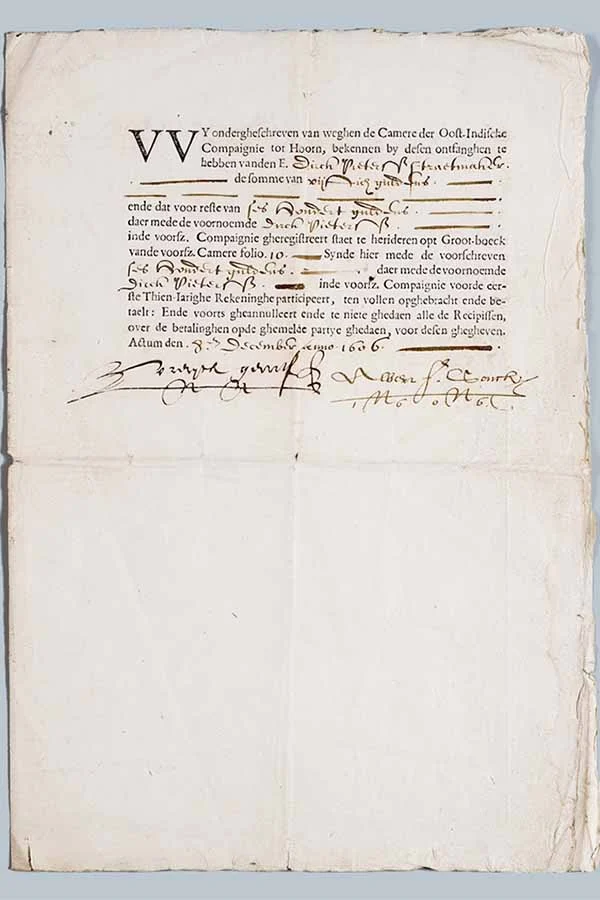 VVY ondergheschreven van weghen de Camere der Oost-Indische
Compaignie tot Hoorn, bekennen by desen ontfanghen te
hebben vanden E. Dirck Pieterſz Straetmaker.
de somme van vijftich guldens
ende dat voor reste van ses Hondert guldens
daer mede de voornoemde Dirck Pietersz
inde voorsz. Compaignie gheregistreert staet te herideren opt Groot-boeck
vande voorsz. Camere folio. 10. Synde hier mede de voorschreven
ses Hondert guldens. daer mede de voornoemde
Dirck Pietersz inde voorsz. Compaignie voorde eer-
ste Thien-Iarighe Rekeninghe participeert, ten vollen opghebracht ende be-
taelt: Ende voorts gheannulleert ende te niete ghedaen alle de Recipissen,
over de betalinghen opde ghemelde partye ghedaen, voor desen ghegheven.
Actum den. 8en December anno. 1606.